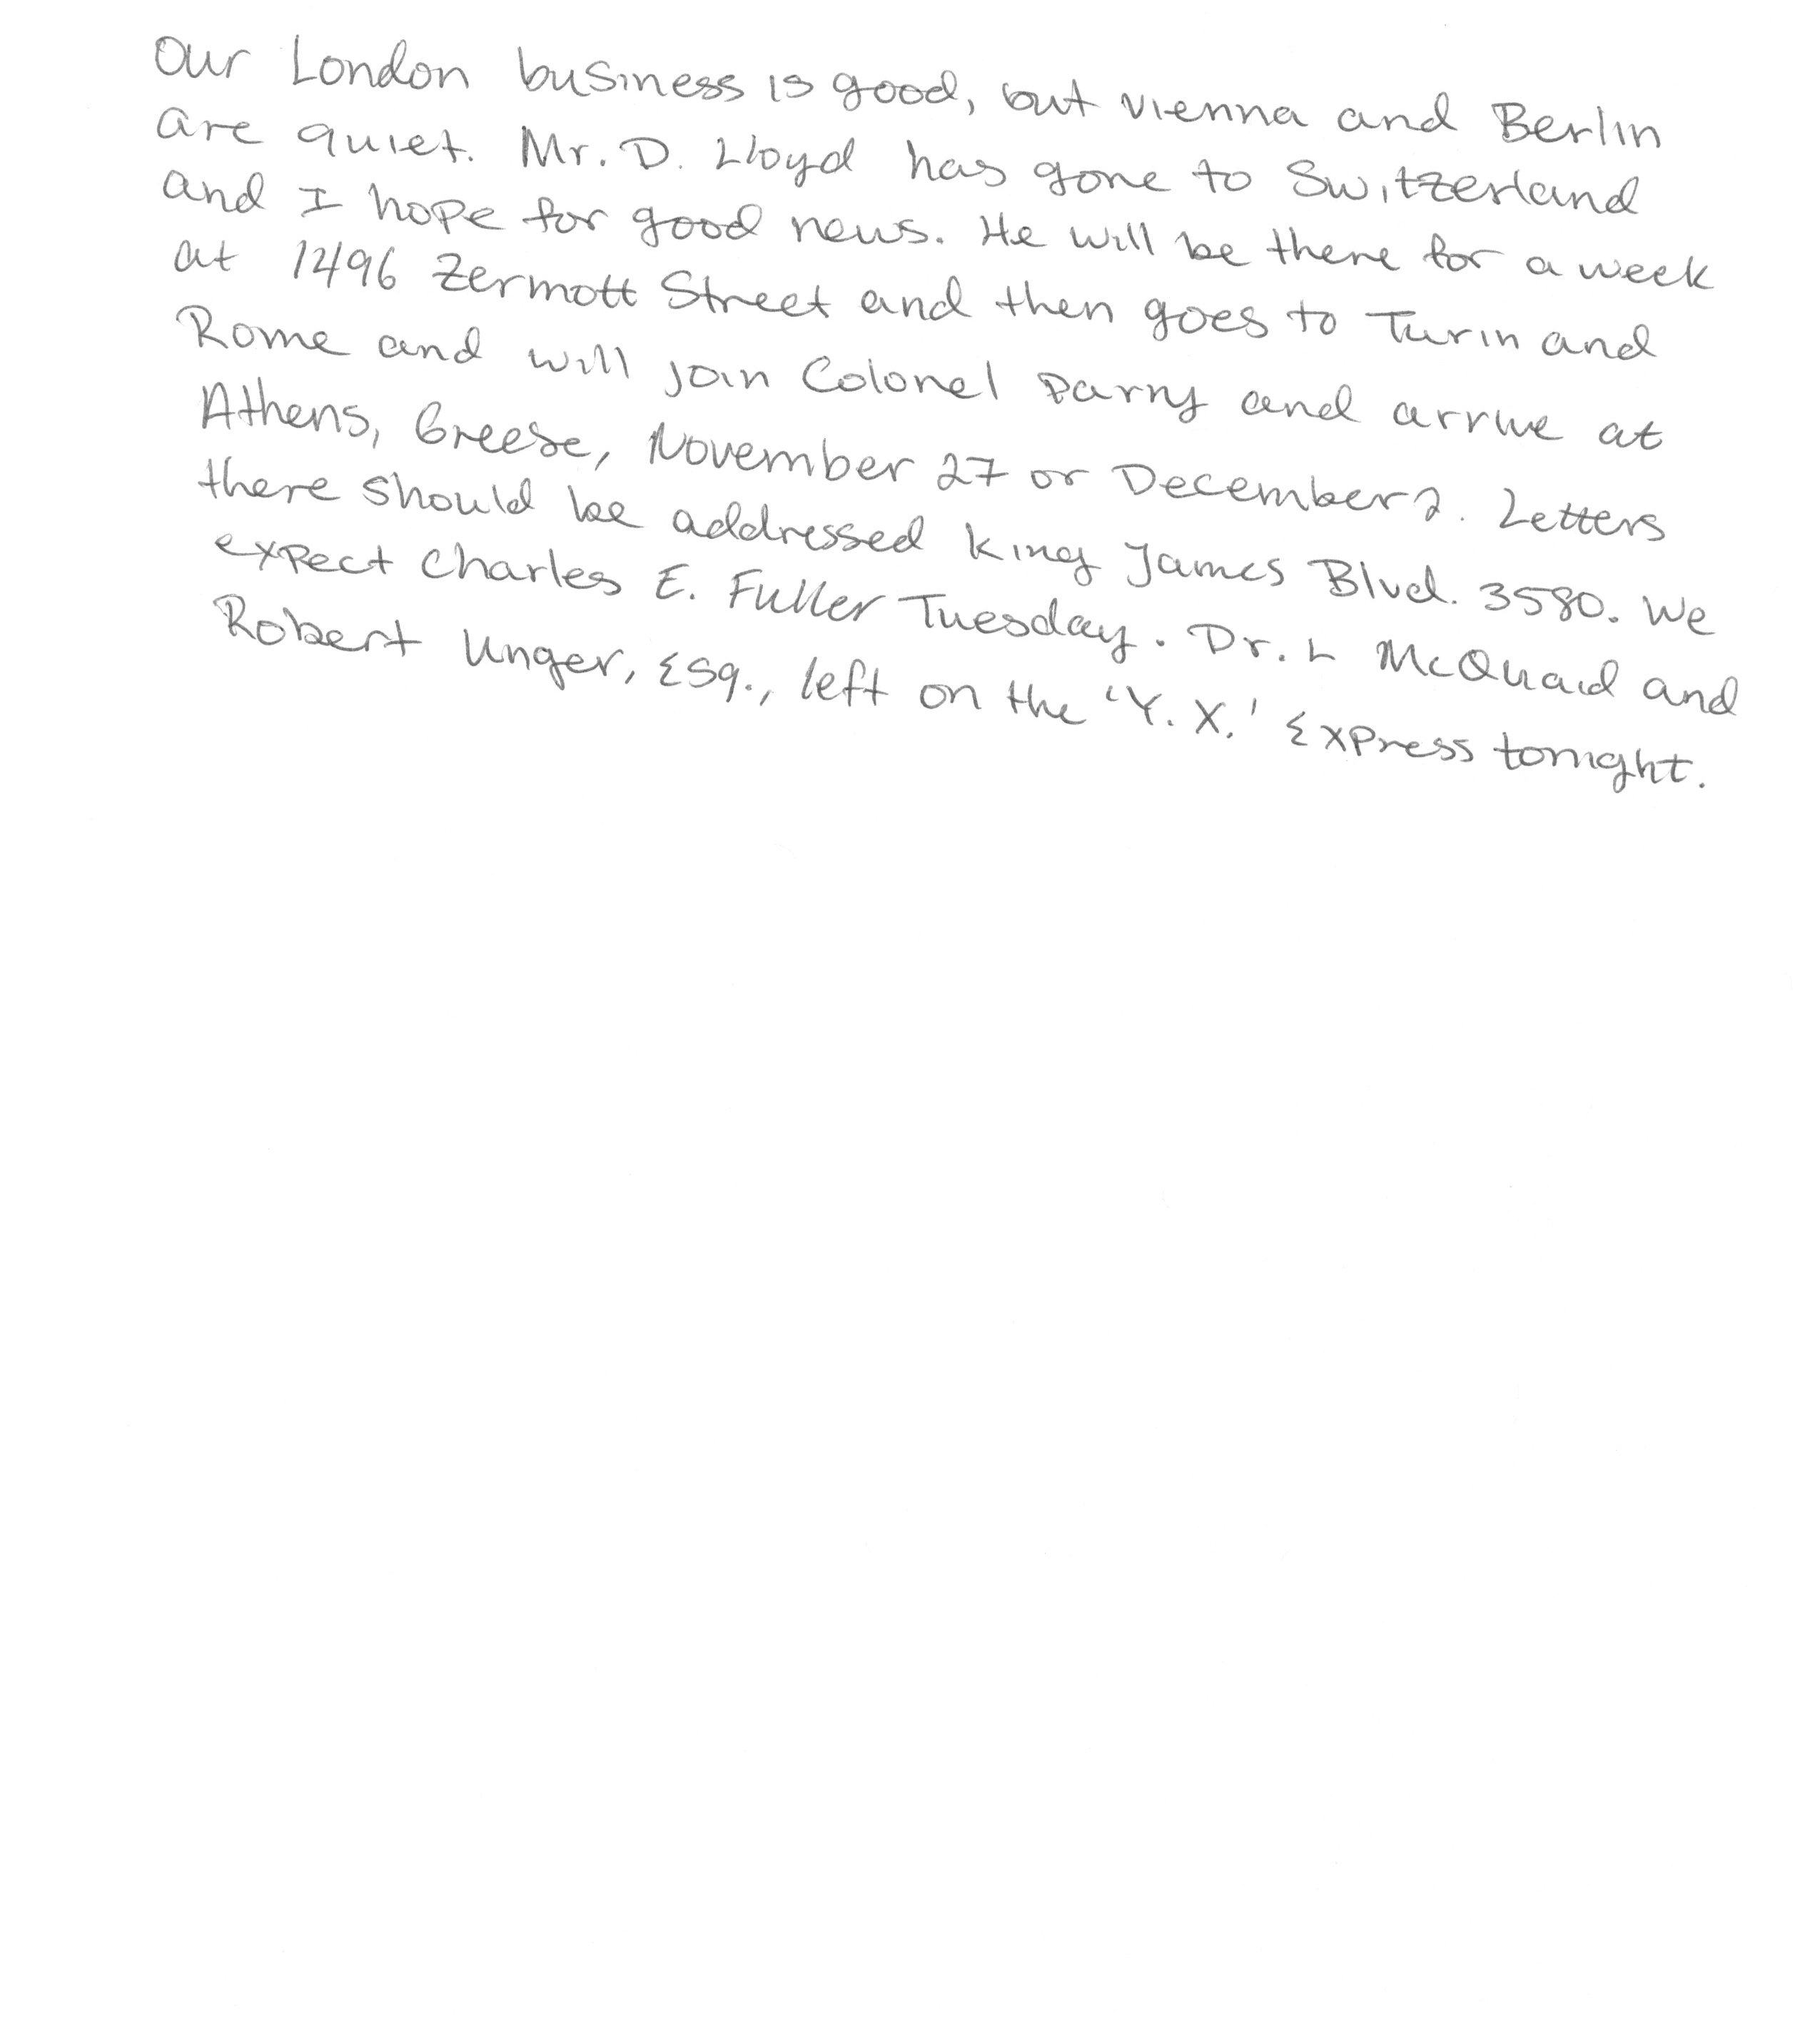 Our London business is good, but Vienna and Berlin
are quiet. Mr. D. Lloyd has gone to Switzerland
and I hope for good news. He will be there for a week
at 1496 Zermott Street and then goes to Turin and
Rome and will join Colonel Parry and arrive at
Athens, Greese, November 27 or December 2. Letters
there should be addressed King James Blvd. 3580. We
expect Charles E. Fuller Tuesday. Dr. L McQuaid and
Robert Unger, Esq., left on the 'Y. X.' Express tonight.